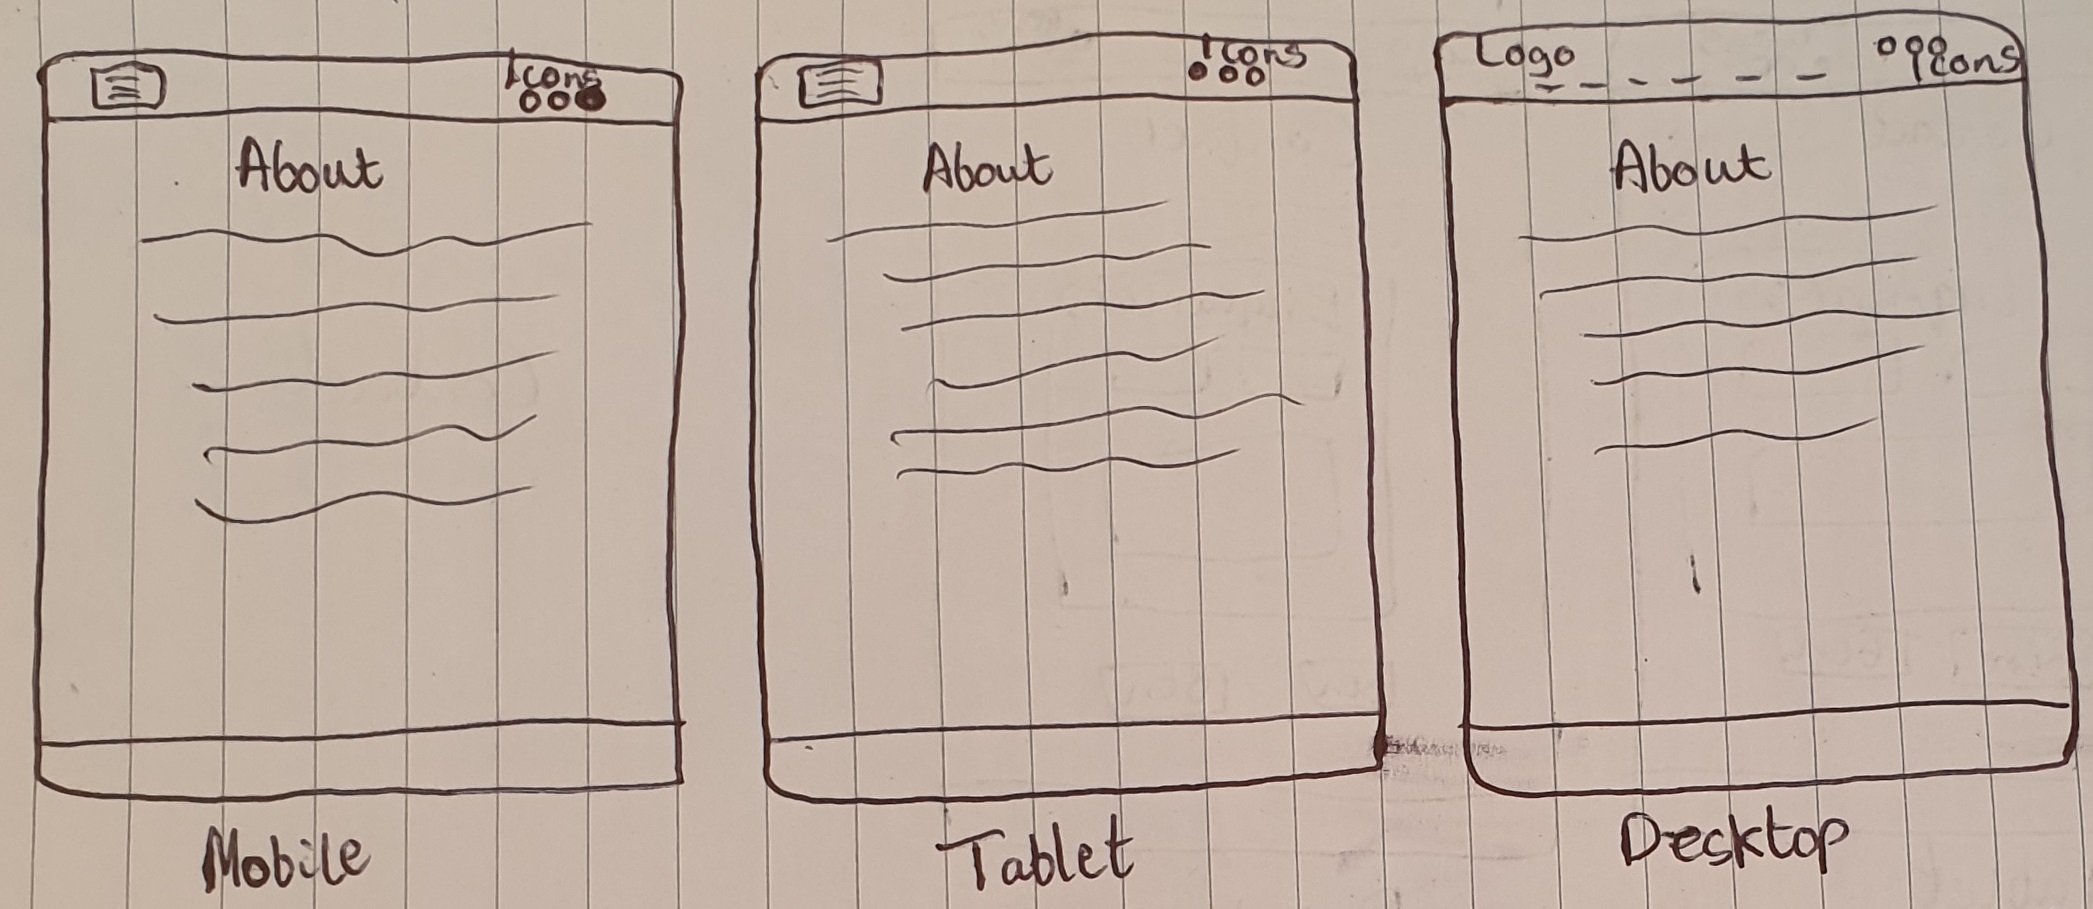 Icons
About
Mobile
Icons
About
Tablet
Logo
Icons
About
Desktop